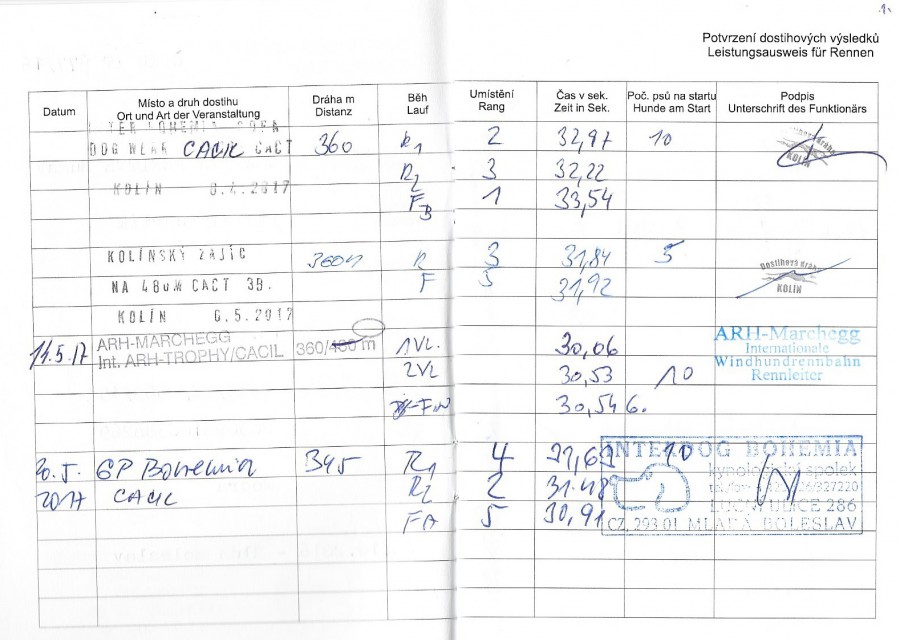 1.
Potvrzení dostihových výsledků
Leistungsausweis für Rennen
Datum
Místo a druh dostihu
Ort und Art der Veranstaltung
Dráha m
Distanz
Běh
Lauf
Umístění
Rang
Čas v sek.
Zeit in Sek.
Poč. psů na startu
Hunde am Start
Podpis
Unterschrift des Funktionärs
CACIL CACT 360 R1 2 32,97 10
R2 3 32,22
KOLÍN 8.4.2017
FB 1 33,54
Dostihová dráha
KOLÍN
KOLÍNSKÝ ZAJÍC 360m R 3 31,84 5
NA 480M CACT 39. F 5 31,92
KOLÍN 6.5.2017
Dostihová dráha
KOLÍN
14.5.17 ARH-MARCHEGG
Int. ARH-TROPHY/CACIL 360/480 m 1VL. 30,06
2VL 30,53 10
30,54 6.
ARH-Marchegg
Internationale
Windhundrennbahn
Rennleiter
20.5. GP Bohemia 345 R1 4 10
2017 CACIL R2 2 31.48
FA 5 30,91
INTERDOG BOHEMIA
kynologický spolek
286
CZ, 293 01 MLADÁ BOLESLAV